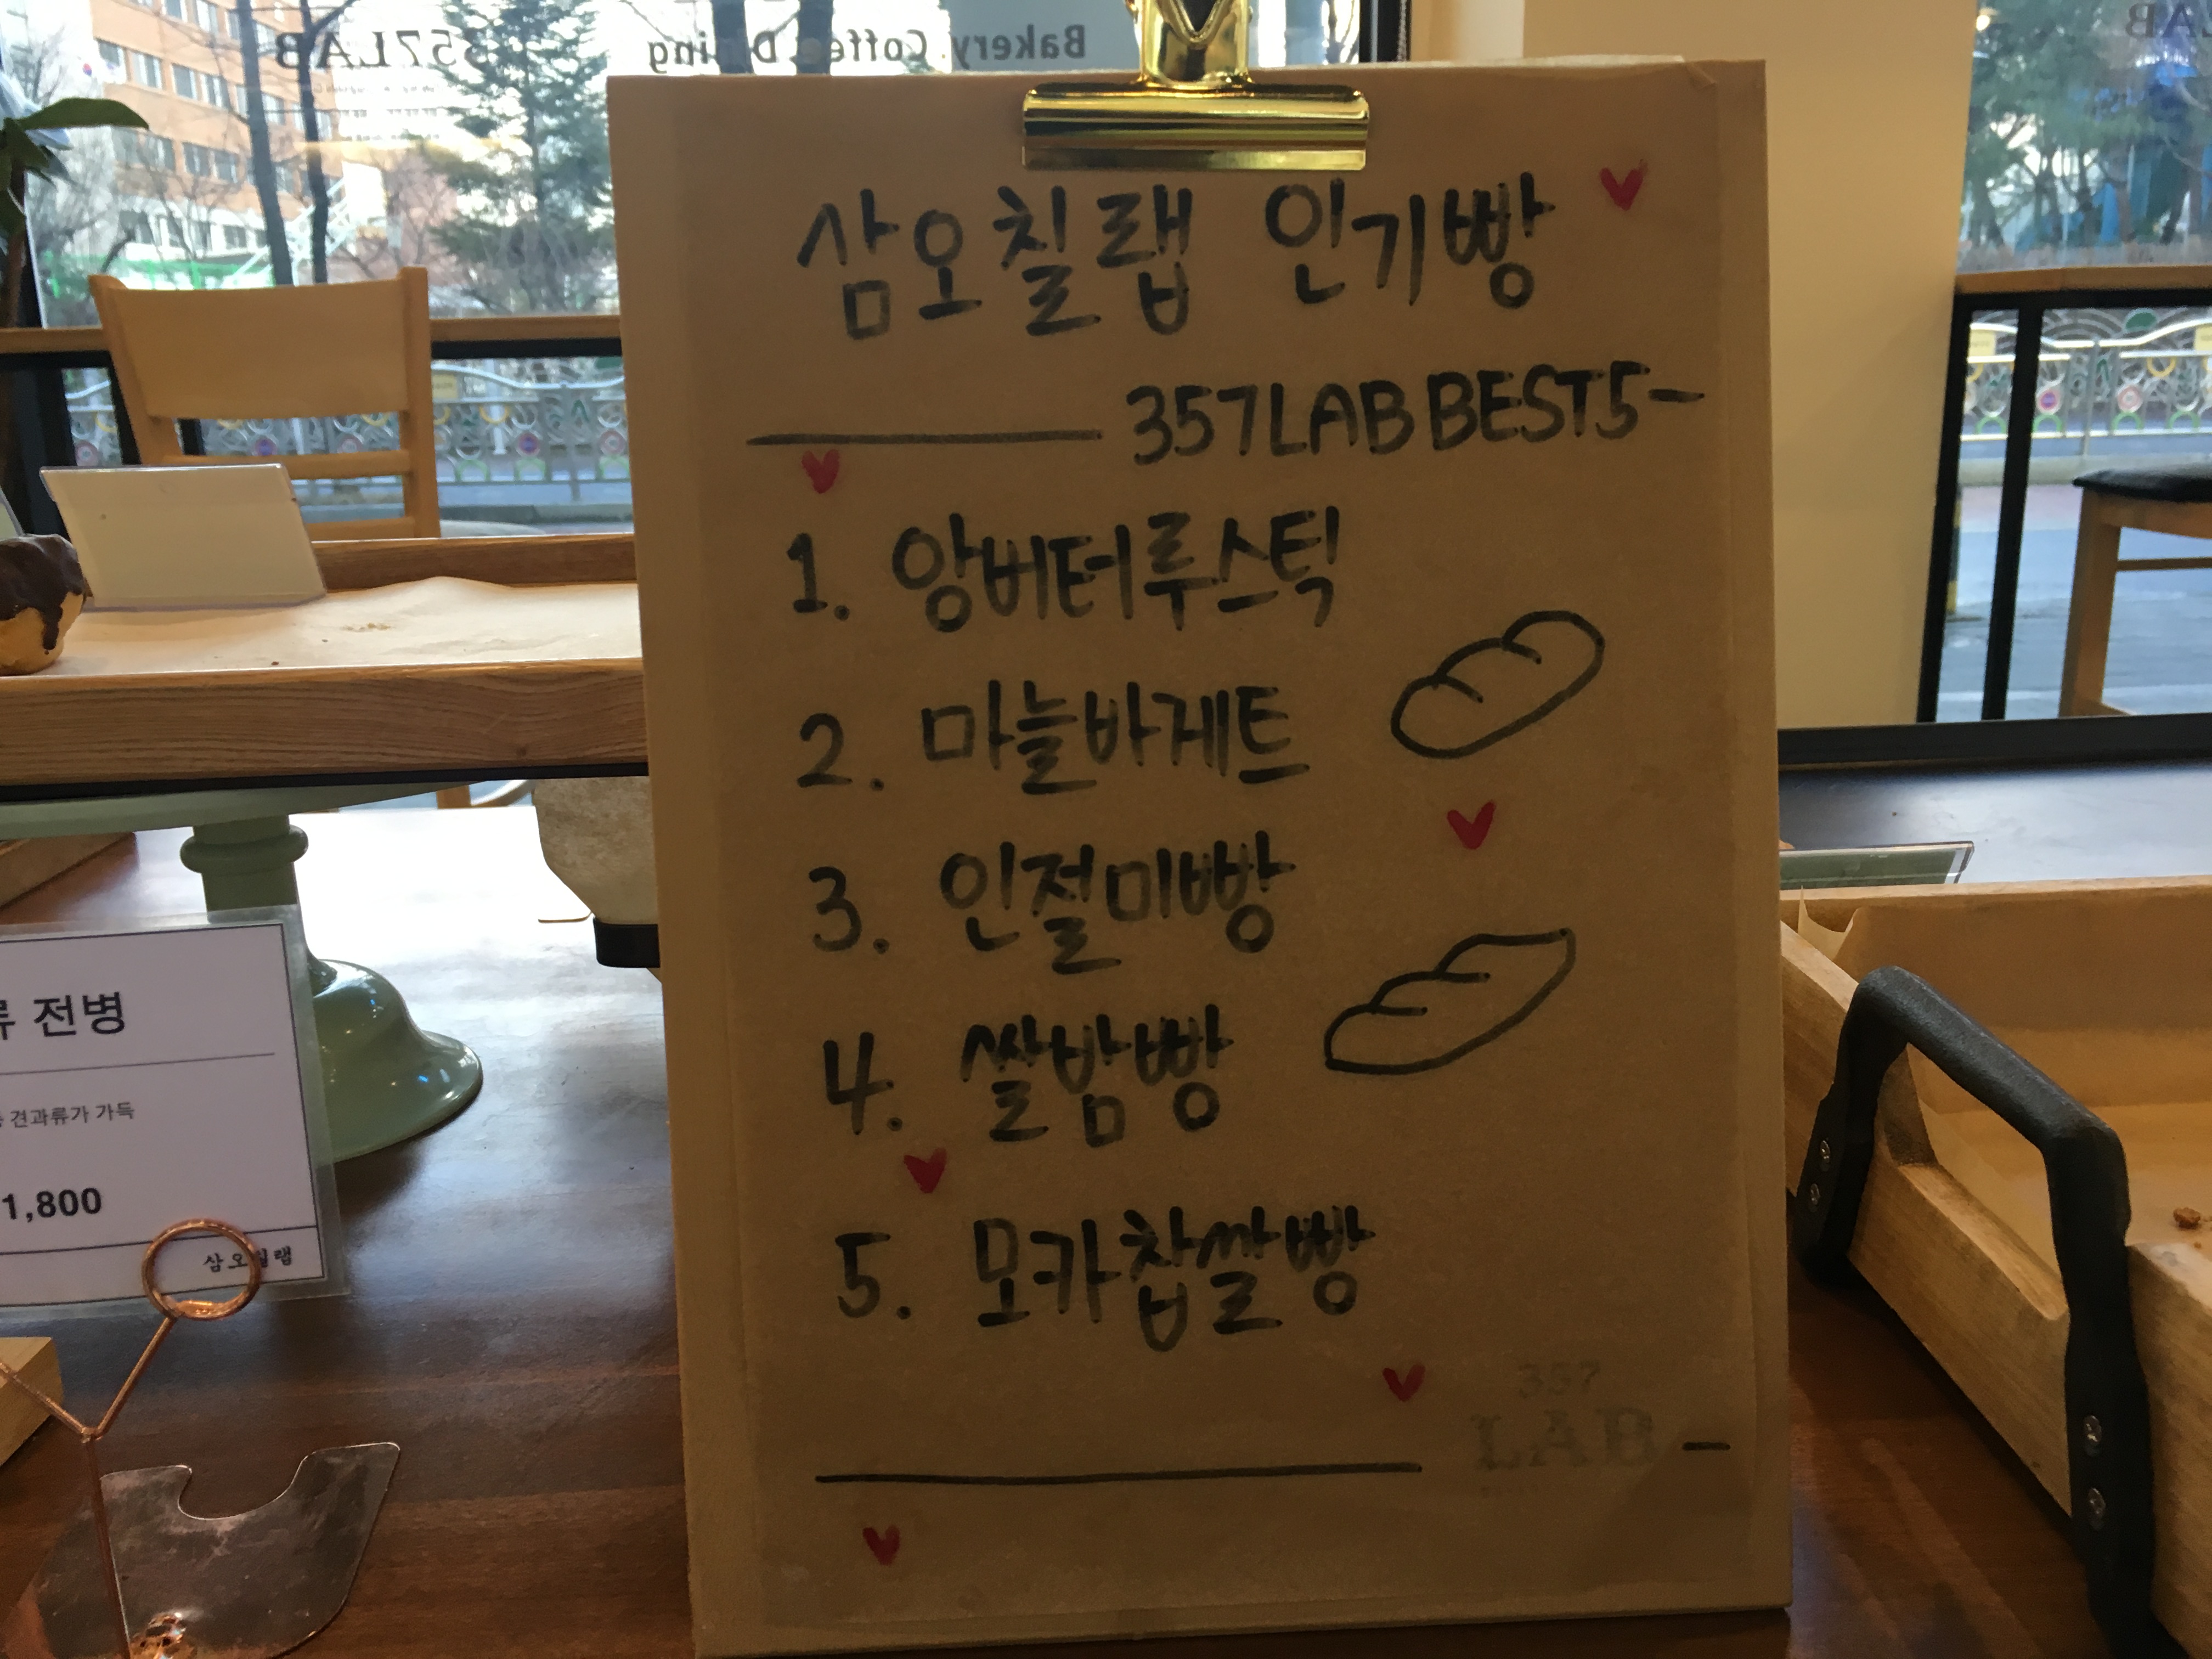 357LAB
Bakery. Coffee. Dining
LAB
삼오칠랩 인기빵
357LAB BEST5
1. 앙버터루스틱
2. 마늘바게트
3. 인절미빵
4. 쌀밤빵
5. 모카찹쌀빵
357
LAB
류 전병
견과류가 가득
1,800
삼오칠랩